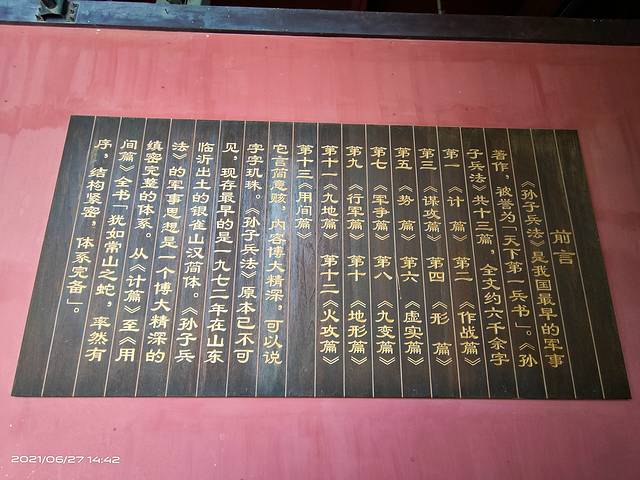 前言
《孙子兵法》是我国最早的军事
著作，被誉为「天下第一兵书」。《孙
子兵法》共十三篇，全文约六千余字
第一《计　篇》第二《作战篇》
第三《谋攻篇》第四《形　篇》
第五《势　篇》第六《虚实篇》
第七《军争篇》第八《九变篇》
第九《行军篇》第十《地形篇》
第十一《九地篇》第十二《火攻篇》
第十三《用间篇》
它言简意赅，内容博大精深，可以说
字字玑珠。《孙子兵法》原本已不可
见，现存最早的是一九七二年在山东
临沂出土的银雀山汉简体。《孙子兵
法》的军事思想是一个博大精深的
缜密完整的体系。从《计篇》至《用
间篇》全书「犹如常山之蛇，率然有
序，结构紧密，体系完备」。
2021/06/27 14:42